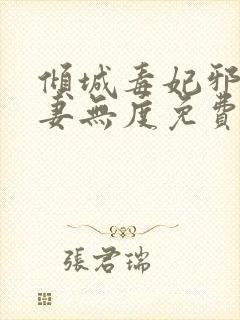 傾城毒妃邪
妻無度免費
張君瑞